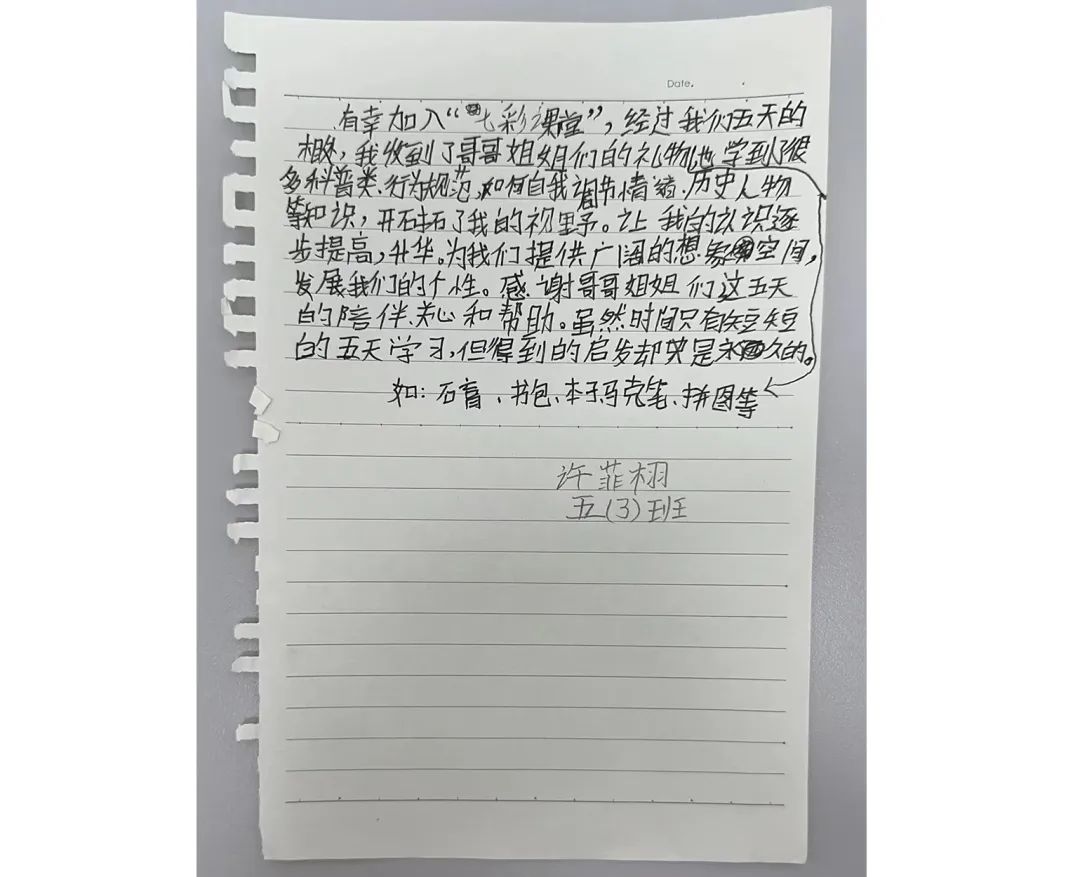 Date.
有幸加入“七彩课堂”，经过我们五天的
相处，我收到了哥哥姐姐们的礼物也学到了很
多科普类、行为规范，如何自我调节情绪、历史人物
等知识，开拓了我的视野。让我的认识逐
步提高，升华。为我们提供广阔的想象空间，
发展我们的个性。感谢哥哥姐姐们这五天
的陪伴、关心和帮助。虽然时间只有短短
的五天学习，但得到的启发却是永久的。
如：石膏、书包、本子、马克笔、拼图等
许菲栩
五（3）班